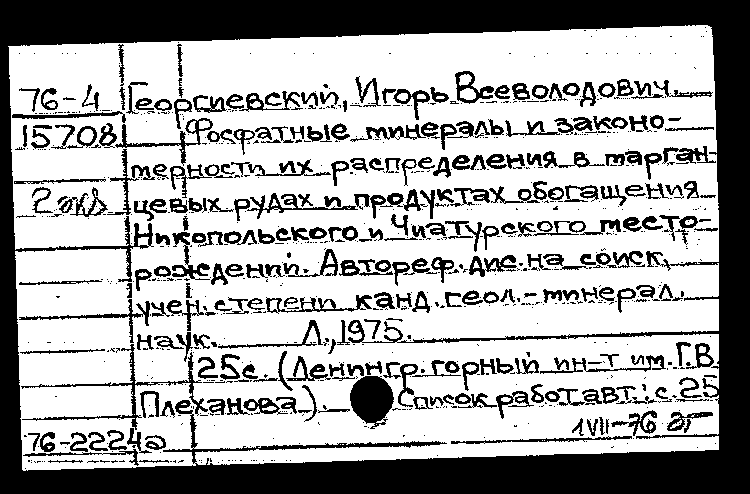 76-4 Георгиевский, Игорь Всеволодович.
15708 Фосфатные минералы и законо-
терности их распределения в тарган-
2 экз цевых рудах и продуктах обогащения
Никопольского и Чиатурского место-
рождений. Автореф. дис. на соиск.
учен. степени канд. геол.-минерал.
наук. Л., 1975.
25с. (Ленингр. горный ин-т им. Г.В.
Плеханова). Список работ авт.: с. 25
76-2224а 1 VII-76